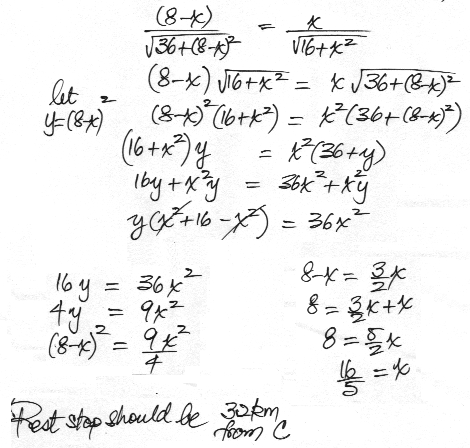 (8-x)/√(36+(8-x)²) = x/√(16+x²)
(8-x)√(16+x²) = x√(36+(8-x)²)
let y=(8-x)²
(8-x)²(16+x²) = x²(36+(8-x)²)
(16+x²)y = x²(36+y)
16y+x²y = 36x²+x²y
y(x²+16-x²) = 36x²
16y = 36x²
4y = 9x²
(8-x)² = 9x²/4
8-x = 3/2 x
8 = 3/2 x+x
8 = 5/2 x
16/5 = x
Rest stop should be
from C